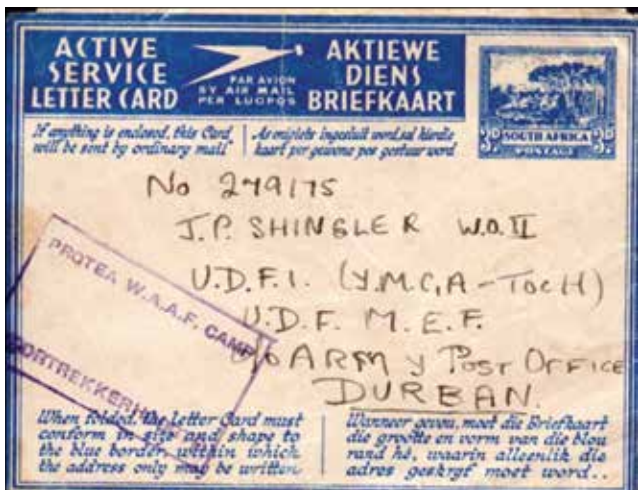 ACTIVE
SERVICE
LETTER CARD
PAR AVION
BY AIR MAIL
PER LUGPOS
AKTIEWE
DIENS
BRIEFKAART
3D
SOUTH AFRICA
3D
POSTAGE
If anything is enclosed, this Card
will be sent by ordinary mail
As enigiets ingesluit word, sal hierdie
kaart per gewone pos gestuur word
No 279175
J.P. SHINGLER W.O. II
U.D.F.I. (Y.M.C.A - Toc H)
U.D.F. M.E.F.
c/o ARMY POST OFFICE
DURBAN.
PROTEA W.A.A.F. CAMP
When folded, the Letter Card must
conform in size and shape to
the blue border, within which
the address only may be written.
Wanneer gevou, moet die Briefkaart
die grootte en vorm van die blou
rand hê, waarin alleenlik die
adres geskryf moet word..